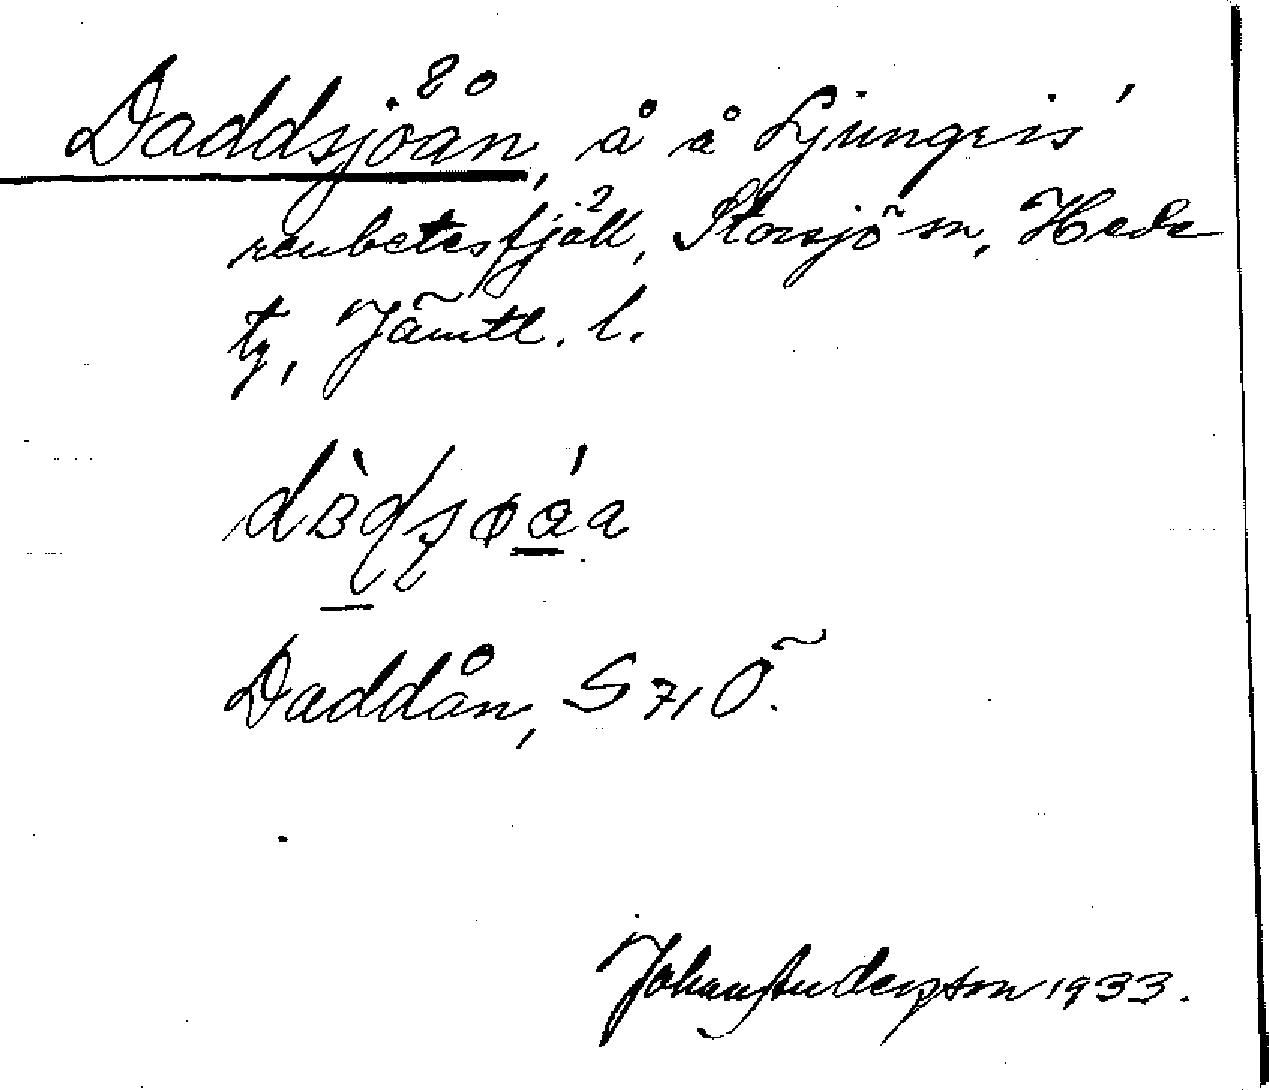 Daddsjöån, å å Ljungris
renbetesfjäll, Storsjö sn, Hede
tg, Jämtl. l.
Daddån, S 71 Ö.
Johan Andersson 1933.